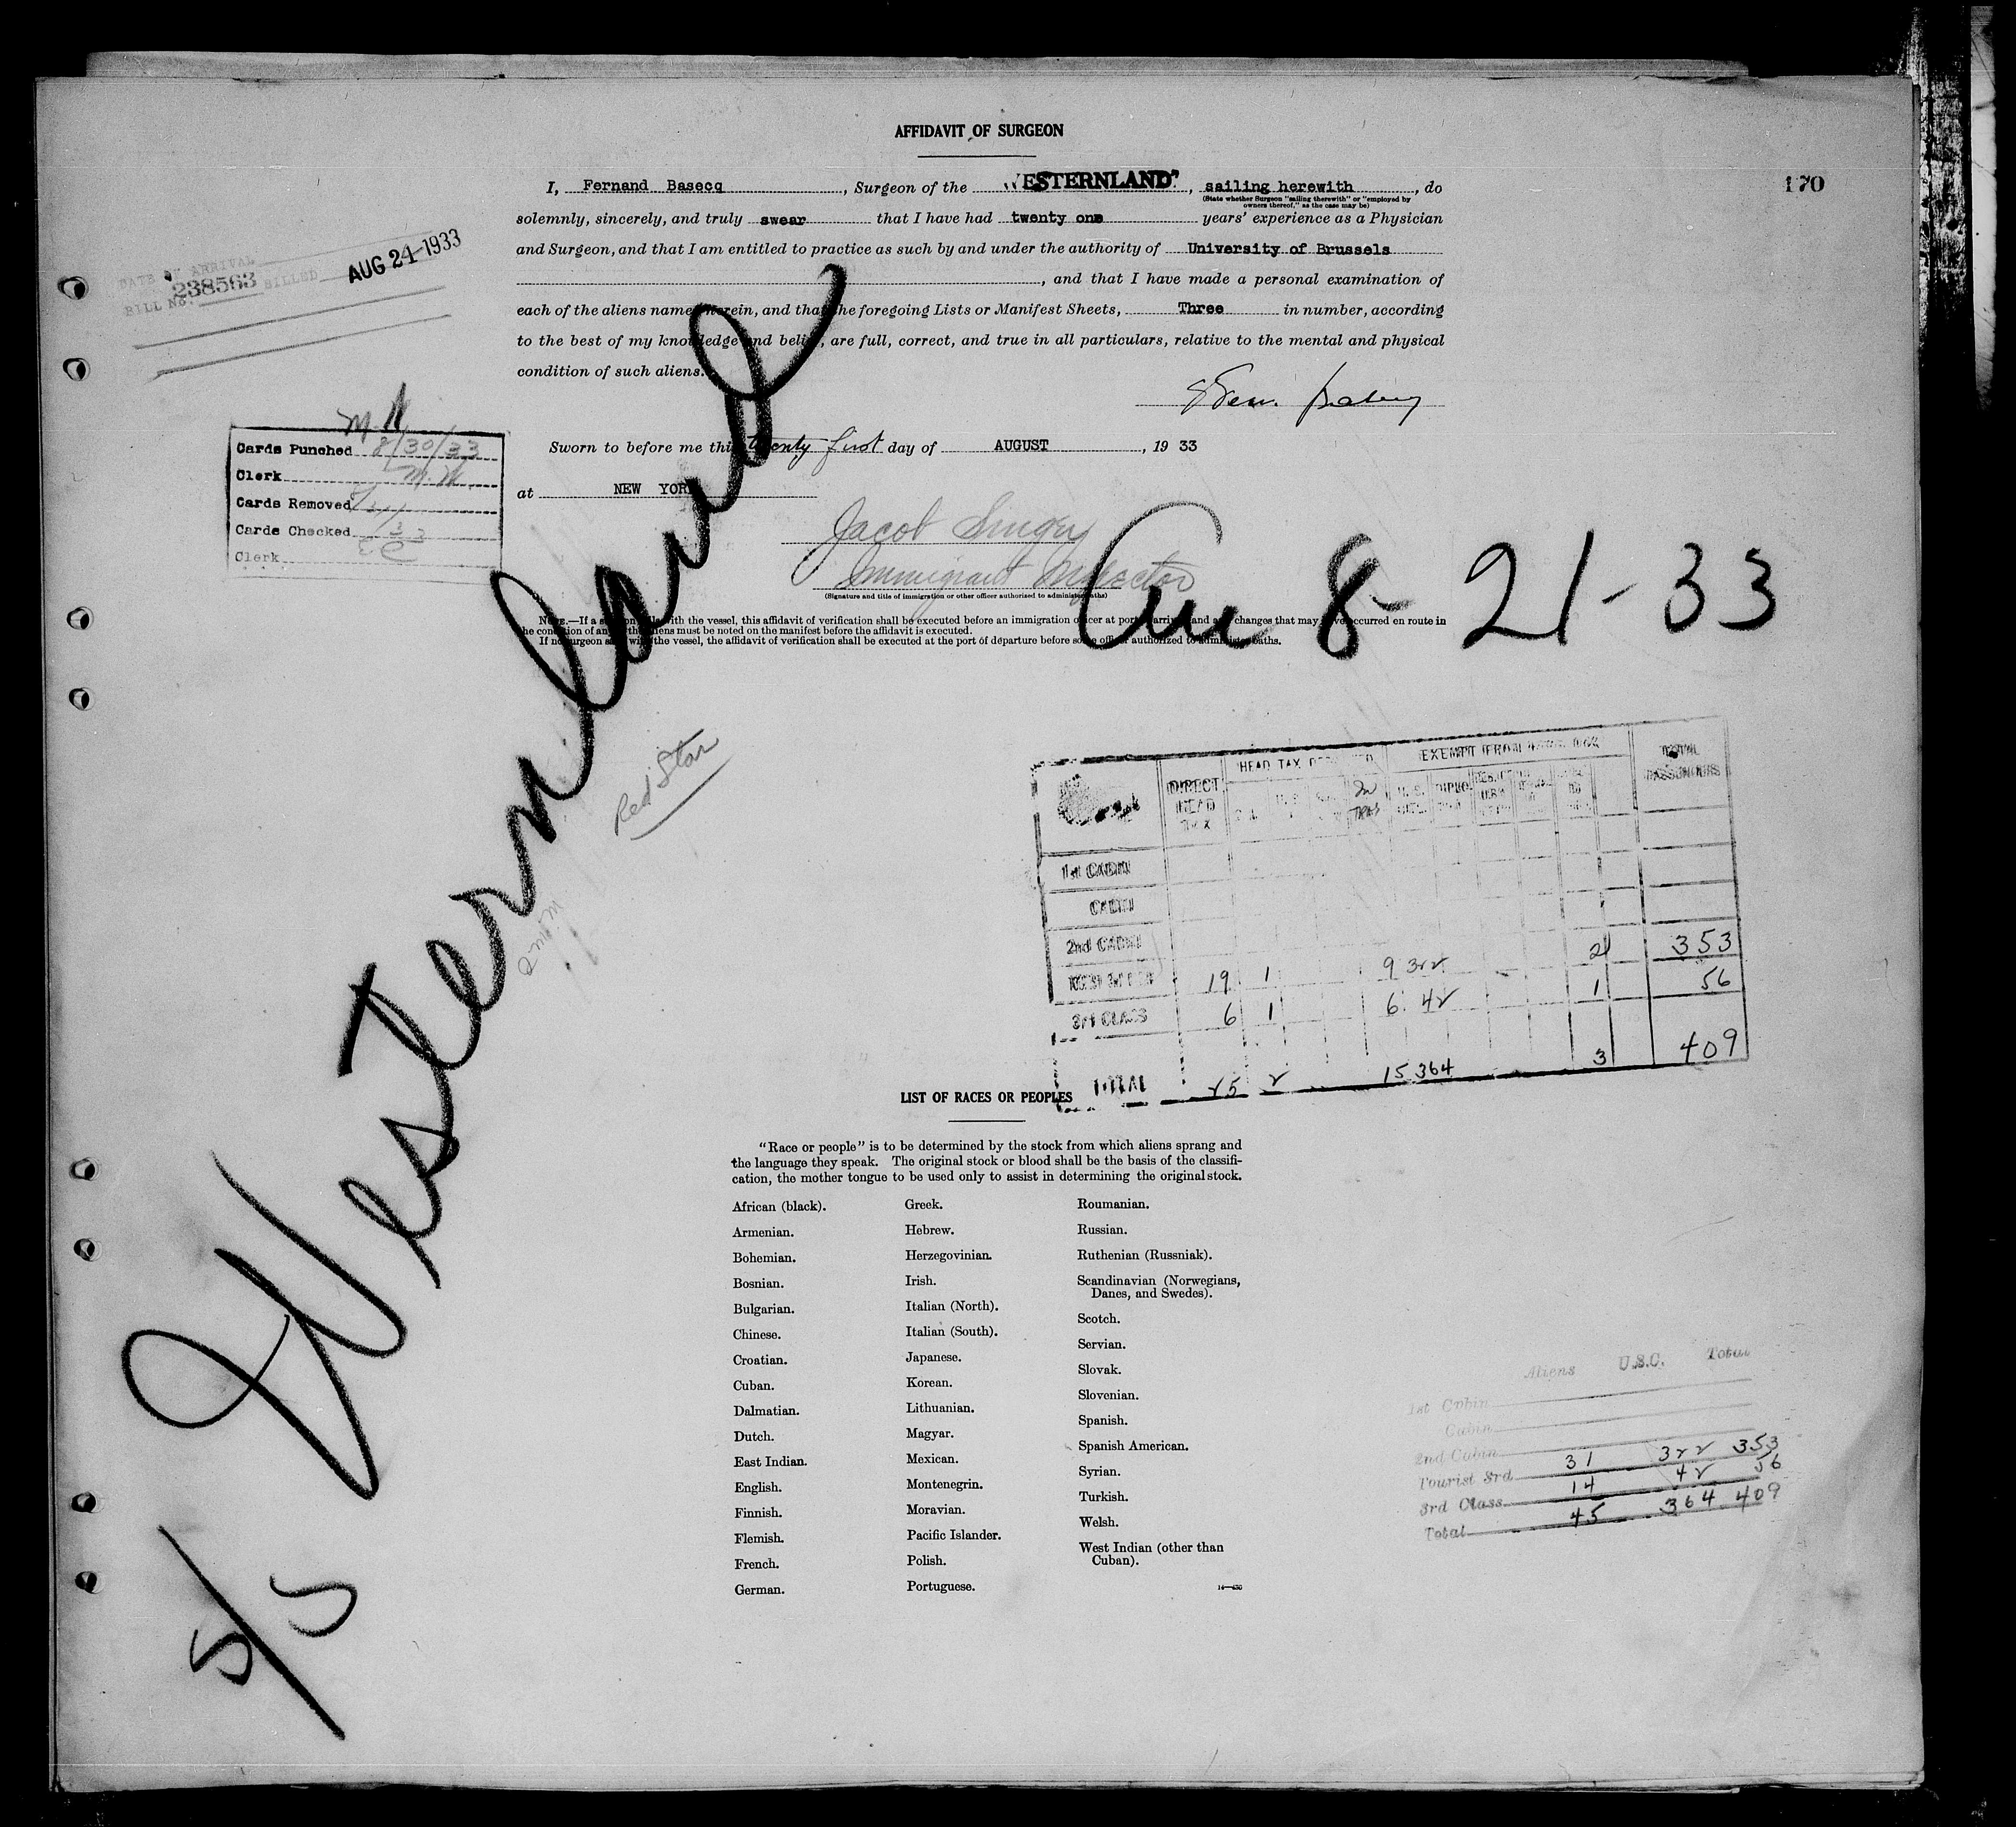 AFFIDAVIT OF SURGEON
170
I, Fernand Basecq, Surgeon of the WESTERNLAND", sailing herewith, do
(State whether Surgeon "sailing therewith" or "employed by
owners thereof," as the case may be)
solemnly, sincerely, and truly swear that I have had twenty one years' experience as a Physician
and Surgeon, and that I am entitled to practice as such by and under the authority of University of Brussels
, and that I have made a personal examination of
each of the aliens named herein, and that the foregoing Lists or Manifest Sheets, Three in number, according
to the best of my knowledge and belief, are full, correct, and true in all particulars, relative to the mental and physical
condition of such aliens.
DATE OF ARRIVAL
BILL No. 238563 BILLED AUG 24 1933
Sworn to before me this twenty first day of AUGUST, 19 33
at NEW YORK
Jacob Singer
Immigrant Inspector
(Signature and title of immigration or other officer authorized to administer oaths)
M.W.
Cards Punched 8/30/33
Clerk M.W.
Cards Removed
Cards Checked
Clerk
NOTE.—If a surgeon sails with the vessel, this affidavit of verification shall be executed before an immigration officer at port of arrival and any changes that may have occurred en route in
the condition of any of the aliens must be noted on the manifest before the affidavit is executed.
If no surgeon sails with the vessel, the affidavit of verification shall be executed at the port of departure before some officer authorized to administer oaths.
8-21-33
S/S Westernland
Red Star
DIRECT HEAD TAX
HEAD TAX
EXEMPT FROM HEAD TAX
TOTAL PASSENGERS
1st CABIN
CABIN
2nd CABIN
19 1 9 322 2 353
3rd CLASS 6 1 6 42 1 56
TOTAL 25 2 15 364 3 409
LIST OF RACES OR PEOPLES
"Race or people" is to be determined by the stock from which aliens sprang and
the language they speak. The original stock or blood shall be the basis of the classifi-
cation, the mother tongue to be used only to assist in determining the original stock.
African (black).
Armenian.
Bohemian.
Bosnian.
Bulgarian.
Chinese.
Croatian.
Cuban.
Dalmatian.
Dutch.
East Indian.
English.
Finnish.
Flemish.
French.
German.
Greek.
Hebrew.
Herzegovinian.
Irish.
Italian (North).
Italian (South).
Japanese.
Korean.
Lithuanian.
Magyar.
Mexican.
Montenegrin.
Moravian.
Pacific Islander.
Polish.
Portuguese.
Roumanian.
Russian.
Ruthenian (Russniak).
Scandinavian (Norwegians,
Danes, and Swedes).
Scotch.
Servian.
Slovak.
Slovenian.
Spanish.
Spanish American.
Syrian.
Turkish.
Welsh.
West Indian (other than
Cuban).
Aliens U.S.C. Total
1st Cabin
Cabin
2nd Cabin
Tourist 3rd 31 322 353
3rd Class 14 42 56
Total 45 364 409